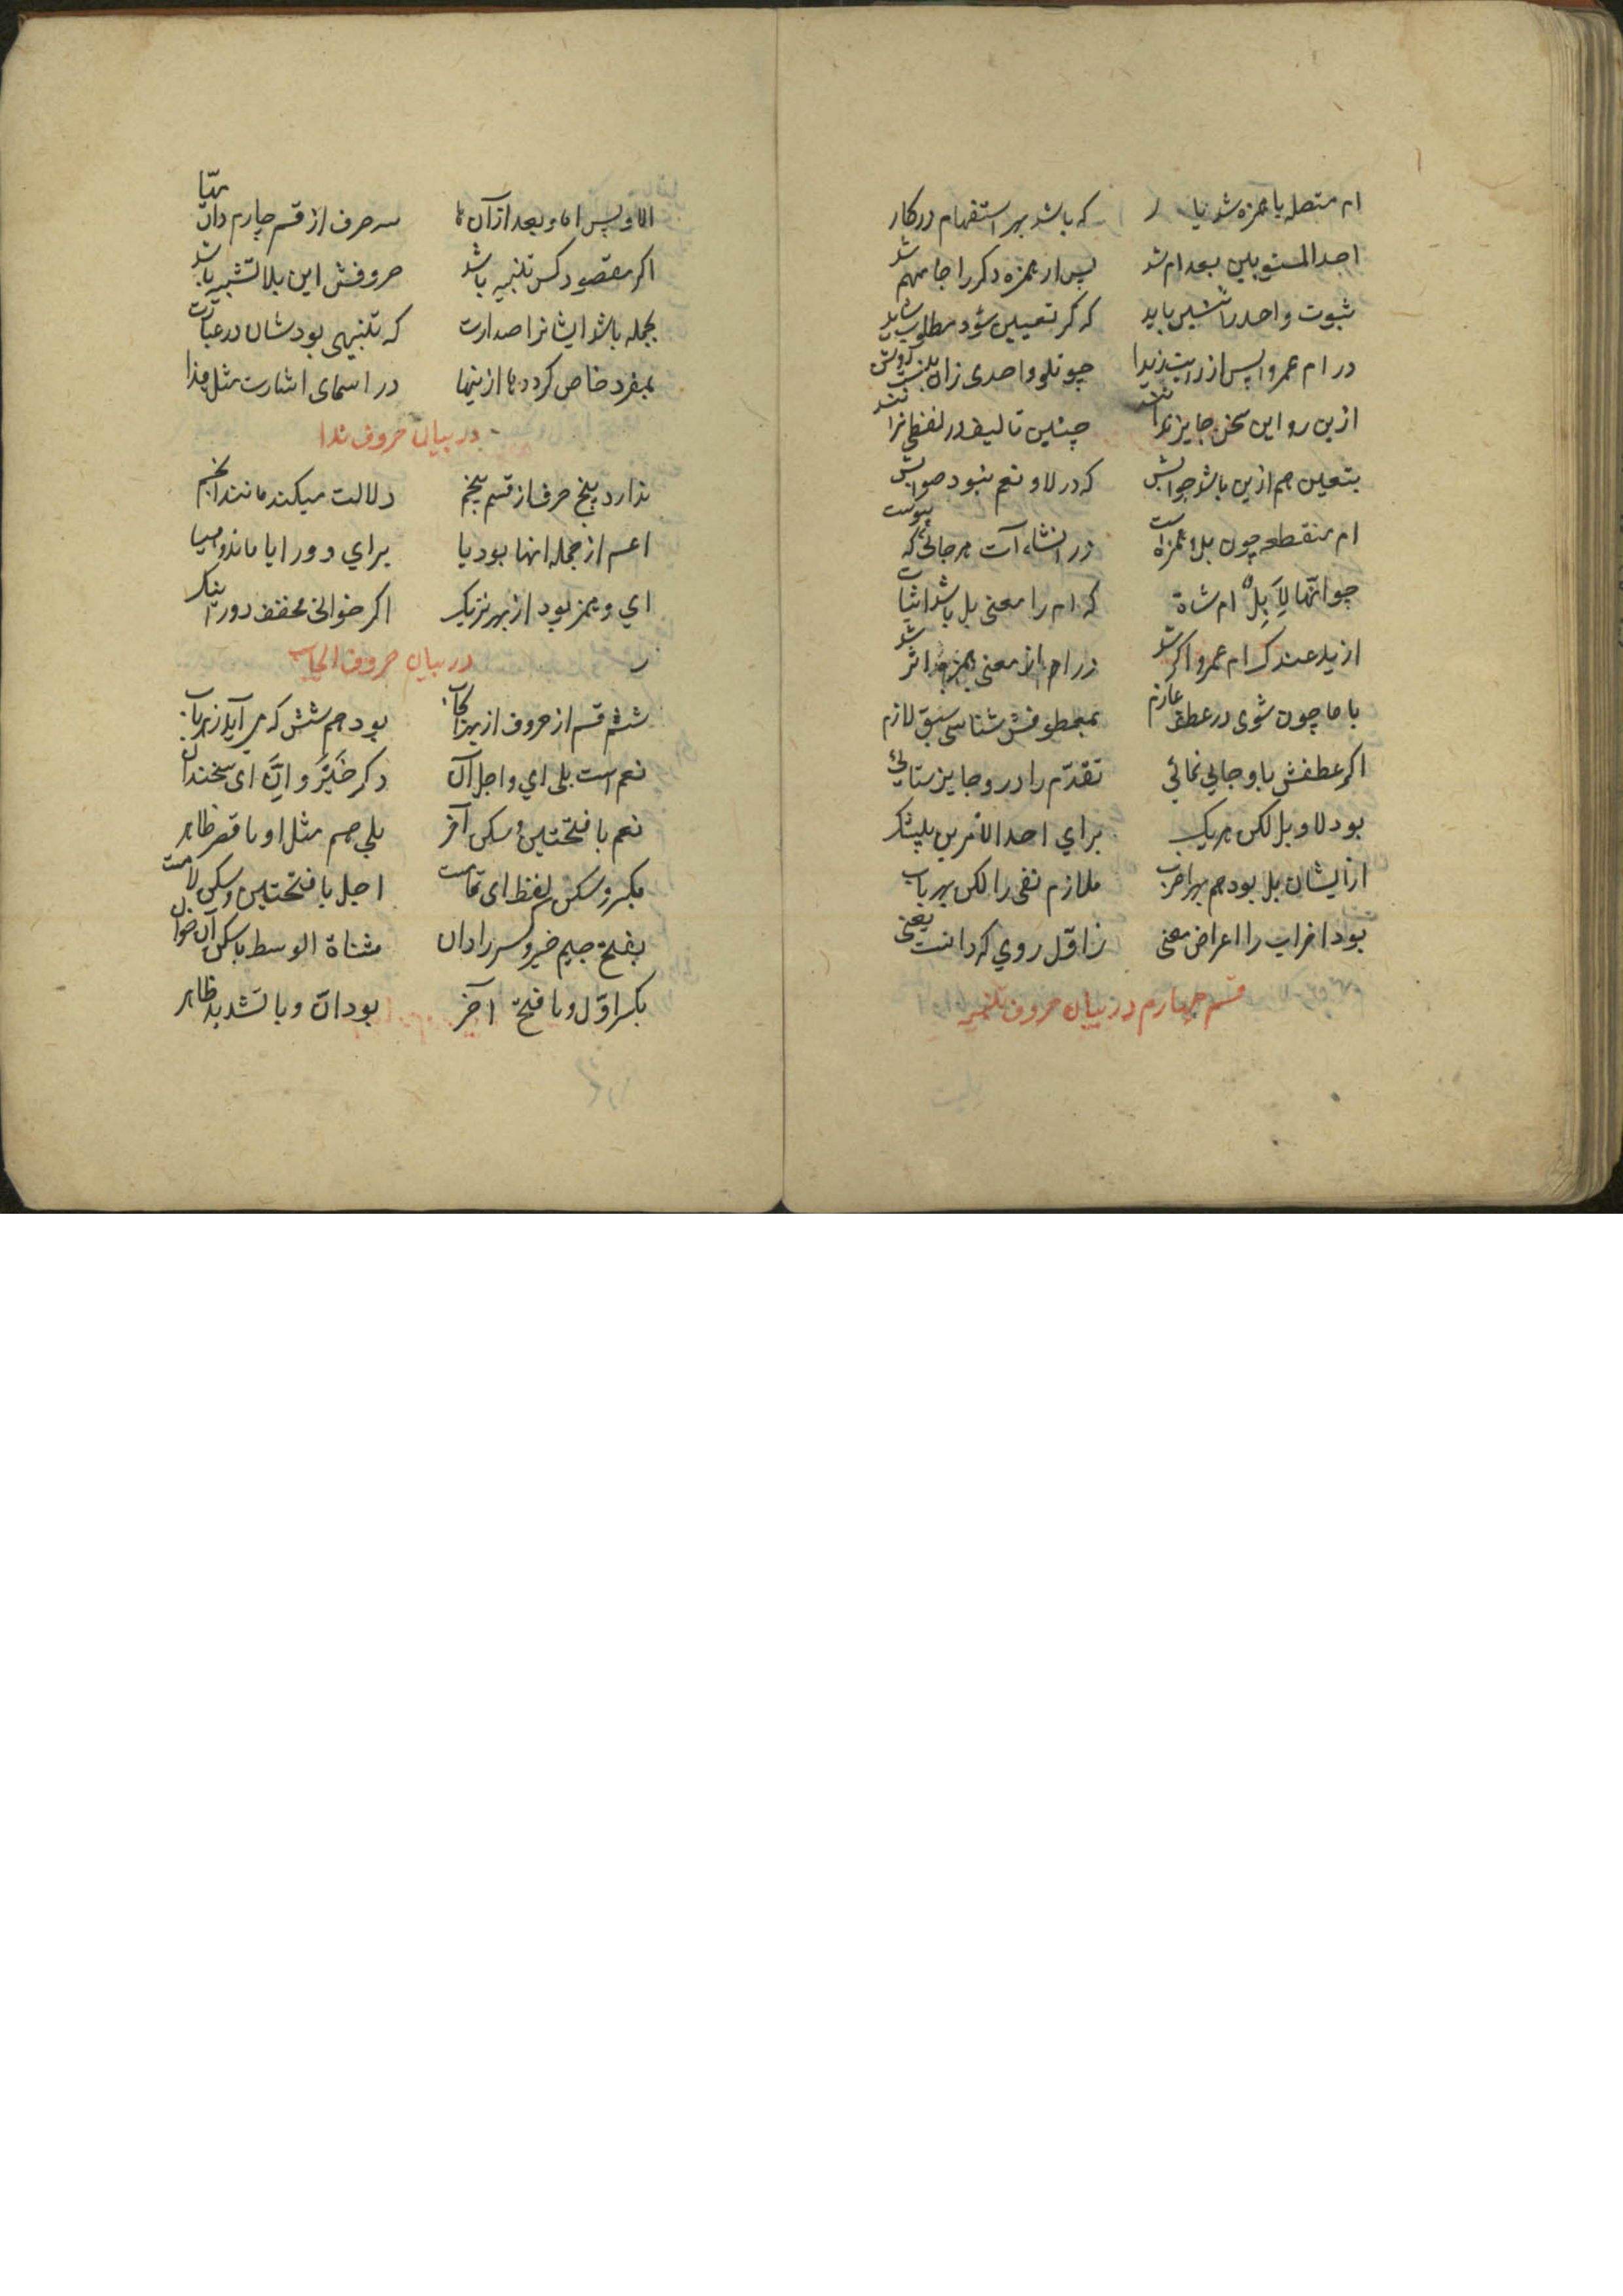 ام متصله با همزه شد یار که باشد بهر استفهام درکار
احد المستویین بعد ام شد پس از همزه دکر را جا مهم شد
ثبوت واحد باید که کر تعیین شود مطلوب شاید
در ام عمروا پس از رایت زیدا چو تلو واحدی زان
ازین رو این سخن جایز ندانند چنین تالیف در لفظی نرانند
بتعیین هم ازین باشد جوابش که در لا و نعم نبود صوابش
ام منقطعه چون بل و همزه است در انشاء آت هر جائی که پیوست
چو انها لابل ام شاة که ام را معنی بل باشد اثبات
ازید عندک ام عمرو اکر شد در ام از معنی همزه اثر شد
با ما چون شوی در عطف عازم بمعطوفش شناسی سبق لازم
اکر عطفش باو جایی نمائی تقدم را درو جایز ستائی
بود لا و بل لکن هریک برای احد الامرین بیشک
ازایشان بل بود هم بهر اضراب ملازم نفی را لکن بهر باب
بود اضراب را اعراض معنی ز اول روی کردانست یعنی
قسم چهارم در بیان حروف تنبیه
الا و پس اما و بعد از آن ها سه حرف از قسم چارم دان مهیا
اکر مقصود کس تنبیه باشد حروفش این بلا تشبیه باشد
بجمله باشد ایشانرا صدارت که تنبیهی بود شان در عبارت
بمفرد خاص کردد ها ازینها در اسمای اشارت مثل هذا
در بیان حروف ندا
ندا رد پنج حرف از قسم پنجم دلالت میکند مانند انجم
اعم از جمله انها بود یا برای دور ایا ماند و هیا
ای و همزه بود از بهر نزدیک اکر خوانی محقق دور
در بیان حروف ایجاب
ششم قسم از حروف از بهر ایجاب بود هم شش که می آید ز هر باب
نعم است بلی ای و اجل آن دکر خیر و ان ای سخندان
نعم با فتحتین و سکن آخر بلی هم مثل او با قصر ظاهر
بکسر و سکن لفظ ای تمامست اجل با فتحتین و سکن لامست
بفتح جیم خیر و کسر را دان مثناة الوسط با سکن آن خوان
بکسر اول و با فتح آخر بود ان و با تشدید ظاهر